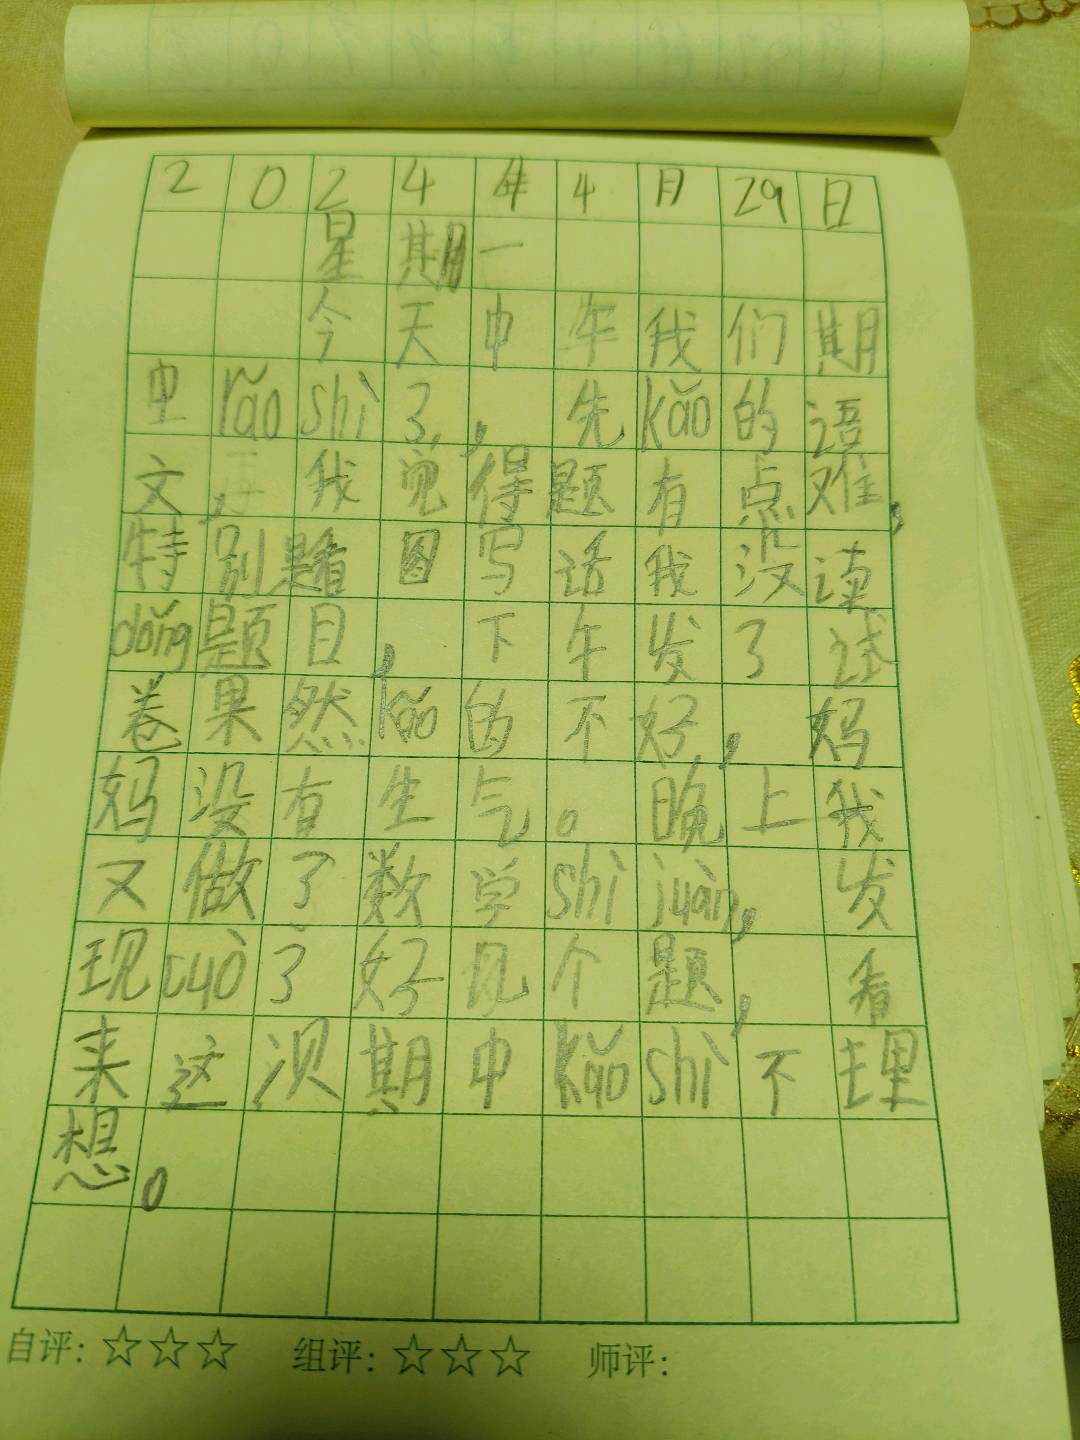 2024年4月29日
星期一
今天中午我们期
中kǎoshì了,先kǎo的语
文,我觉得题有点难,
特别是看图写话我没读
dǒng题目,下午发了试
卷果然kǎo的不好,妈
妈没有生气。晚上我
又做了数学shìjuàn,发
现cuò了好几个题,看
来这次期中kǎoshì不理
想。
自评:☆☆☆ 组评:☆☆☆ 师评: